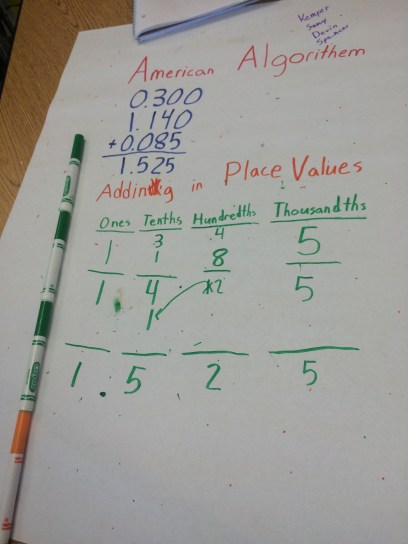 Kemper
Samy
Devin
Spencer
American Algorithem
0.300
1.140
+0.085
1.525
Adding in Place Values
Ones Tenths Hundredths Thousandths
3 4
1 1 8 5
1 4 12 5
1
1 . 5 2 5